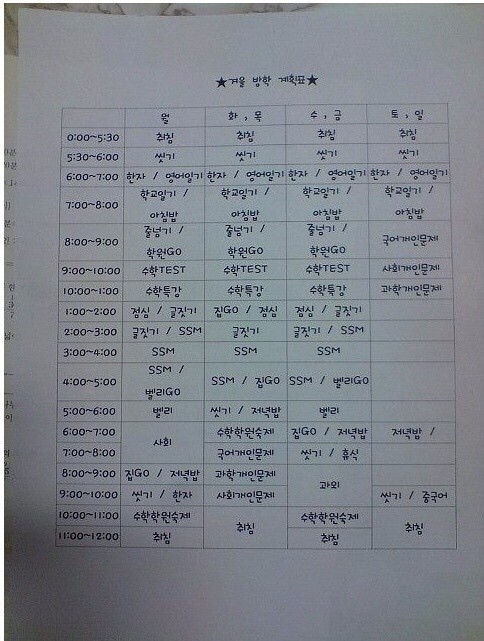 ★겨울 방학 계획표★
월 화, 목 수, 금 토, 일
0:00~5:30 취침 취침 취침 취침
5:30~6:00 씻기 씻기 씻기 씻기
6:00~7:00 한자 / 영어일기 한자 / 영어일기 한자 / 영어일기 한자 / 영어일기
7:00~8:00 학교일기 / 아침밥 학교일기 / 아침밥 학교일기 / 아침밥 학교일기 / 아침밥
8:00~9:00 줄넘기 / 학원GO 줄넘기 / 학원GO 줄넘기 / 학원GO 국어개인문제
9:00~10:00 수학TEST 수학TEST 수학TEST 사회개인문제
10:00~1:00 수학특강 수학특강 수학특강 과학개인문제
1:00~2:00 점심 / 글짓기 집GO / 점심 점심 / 글짓기
2:00~3:00 글짓기 / SSM 글짓기 글짓기 / SSM
3:00~4:00 SSM SSM SSM
4:00~5:00 SSM / 벨리GO SSM / 집GO SSM / 벨리GO
5:00~6:00 벨리 씻기 / 저녁밥 벨리
6:00~7:00 사회 수학학원숙제 집GO / 저녁밥 저녁밥 /
7:00~8:00 국어개인문제 씻기 / 휴식
8:00~9:00 집GO / 저녁밥 과학개인문제 과외
9:00~10:00 씻기 / 한자 사회개인문제 씻기 / 중국어
10:00~11:00 수학학원숙제 취침 수학학원숙제 취침
11:00~12:00 취침 취침